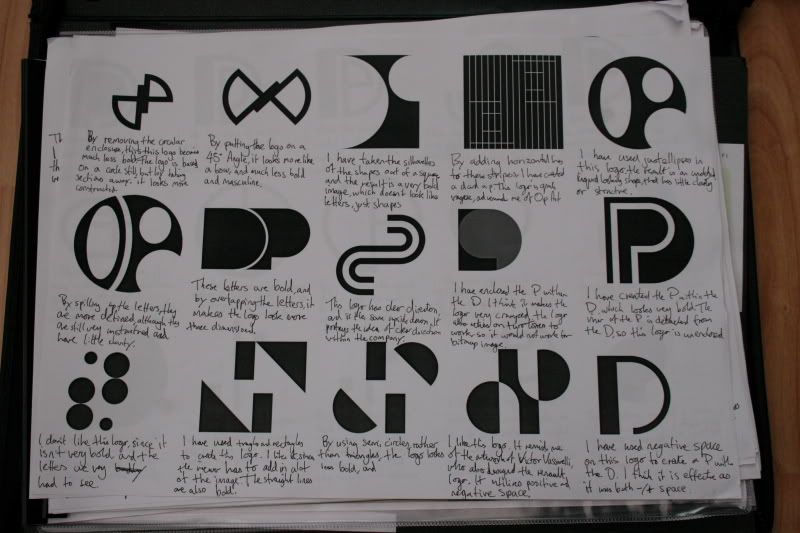 By removing the circular
enclosure, this logo becomes
much less bold. The logo is based
on a circle still but by taking
sections away. it looks more
constructed.
By putting the logo on a
45° Angle, it looks more like
a bow, and much less bold
and masculine.
I have taken the silhouettes
of the shapes out of a square
and the result is a very bold
image, which doesn't look like
letters, just shapes
By adding horizontal lines
to these stripes I have created
a dark p. The logo is quite
vague, and reminds me of Op Art
I have used just ellipses in
this logo, the result is an
looking shape, that has little clarity
or structure.
By splitting up the letters, they
are more defined, although they
are still very unstructured and
have little clarity.
These letters are bold, and
by overlapping the letters, it
makes the logo look more
three dimensional.
This logo has clear direction,
and is the same upside down. It
portrays the idea of clear direction
within the company.
I have enclosed the P within
the D. I think it makes the
logo very cramped. the logo
also relies on two tones to
work, so it would not work for
bitmap image.
I have created the P within the
D, which looks very bold. The
of the P is detached from
the D, so this logo is unenclosed
I don't like this logo, since it
isn't very bold and the
letters are very
hard to see.
I have used triangles and rectangles
to create this logo. I like the
the viewer has to add in alot
of the image. The straight lines
are also bold.
By using semi circles, rather
than triangles, the logo looks
less bold, and
I like this logo. It reminds me
of the artwork of Victor Vasarelli,
who also designed the renault
logo. It utilizes positive and
negative space.
I have used negative space
on this logo to create a P with
the D. I think it is effective as
it uses both -/+ space.